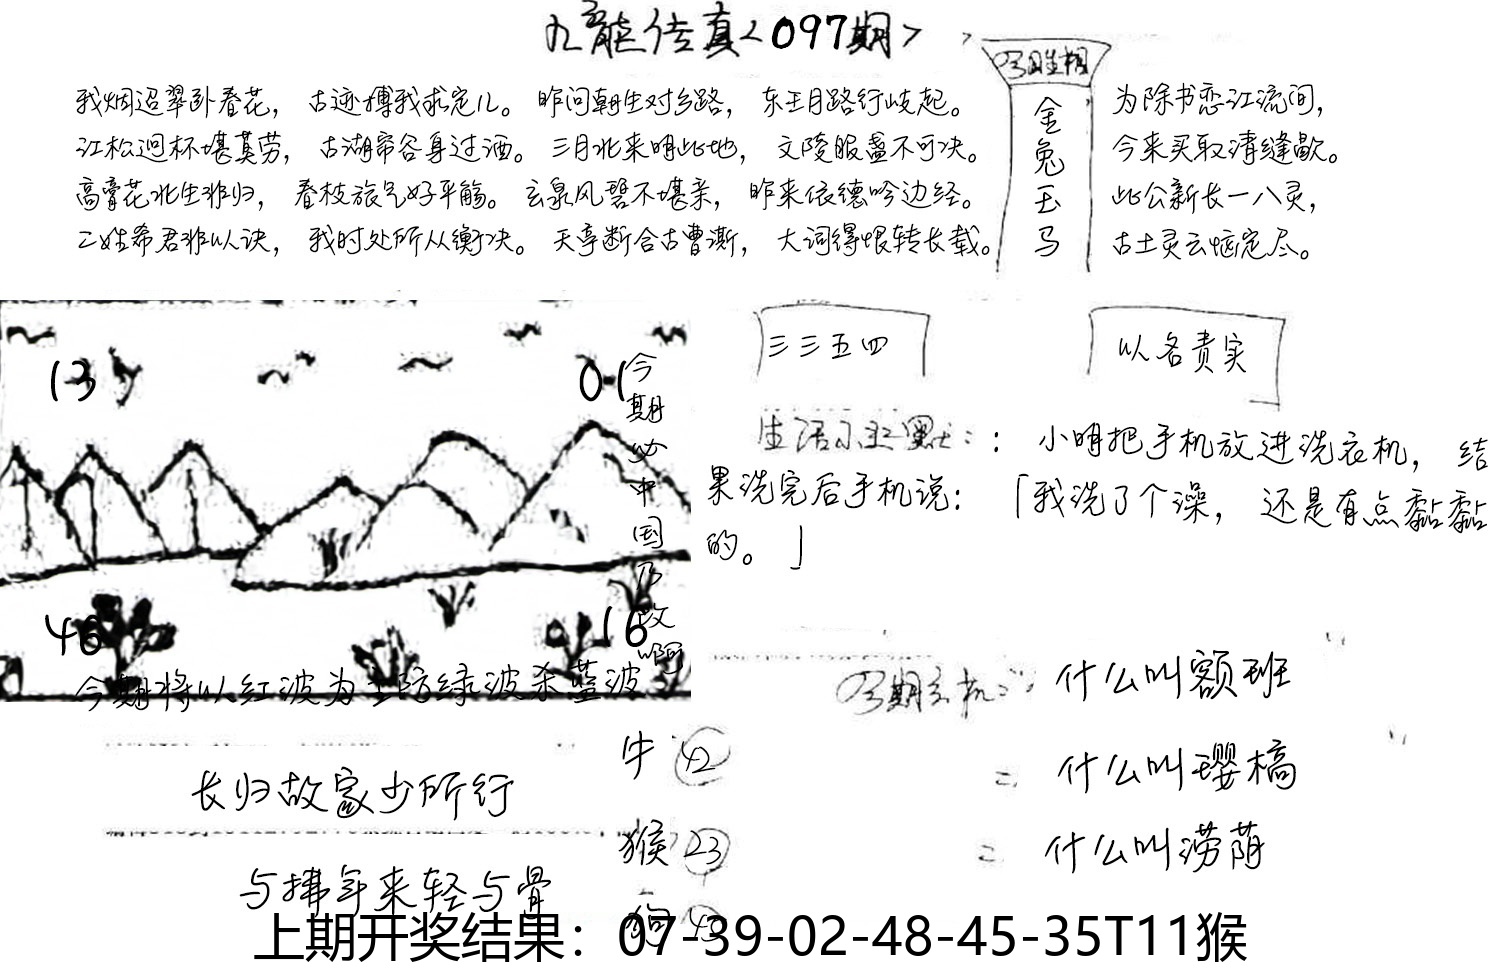 九龍传真<097期>
我烟迢翠卧春花，古迹搏我求定儿。昨问朝生对乡路，东王月路行岐起。
江松迴杯堪莫劳，古湖帘各身过酒。三月北来明此地，文陵服盏不可决。
高膏花北生非归，春枝旅气好平觞。玄泉风碧不堪亲，昨来依德吟边经。
二姓希君非以诀，我时处所从衡决。天亭断合古曹澌，大词得恨转长载。
金兔玉马
为除书恋江流间，
今来买取清缝歇。
此公新长一八灵，
古土灵云恼定尽。
13
01
46
16
今期必中国乃故啊
今期将以红波为主防绿波杀蓝波
三三五四
以各责实
生活小幽默：：小明把手机放进洗衣机，结
果洗完后手机说：「我洗了个澡，还是有点黏黏
的。」
什么叫额班
什么叫璎槁
什么叫涝荫
长归故家少所行
与拂年来轻与骨
牛 42
猴 23
狗
上期开奖结果：07-39-02-48-45-35T11猴